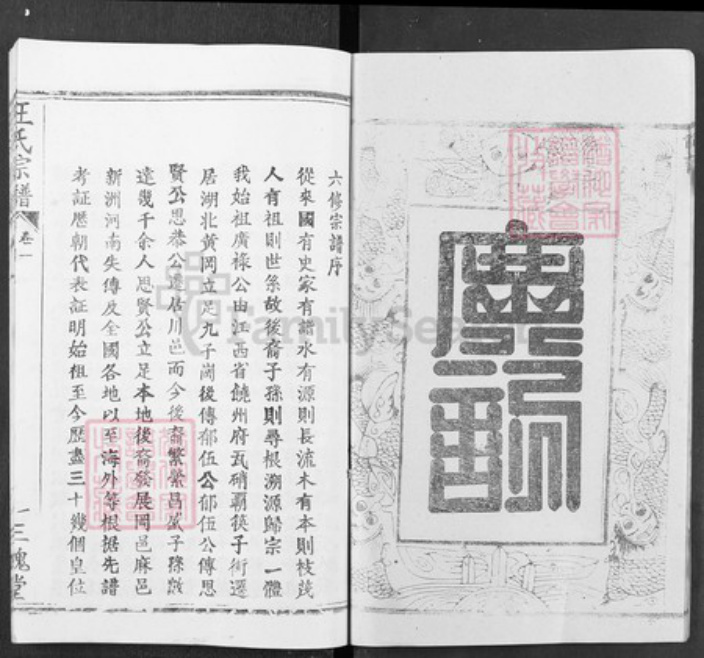 六修宗譜序
從來國有史家有譜水有源則長流木有本則枝茂
人有祖則世系故後裔子孫則尋根溯源歸宗一體
我始祖廣祿公由江西省饒州府瓦硝覇筷子街遷
居湖北黄岡立足九子崗後傳郁伍公郁伍公傳思
賢公思恭公遷居川邑而今後裔繁榮昌盛子孫
達幾千余人思賢公立足本地後裔發展岡邑麻邑
新洲河南失傳及全國各地以至海外等根据先譜
考証歷朝代表証明始祖至今歷盡三十幾個皇位
王氏宗譜
卷一
三槐堂
FamilySearch